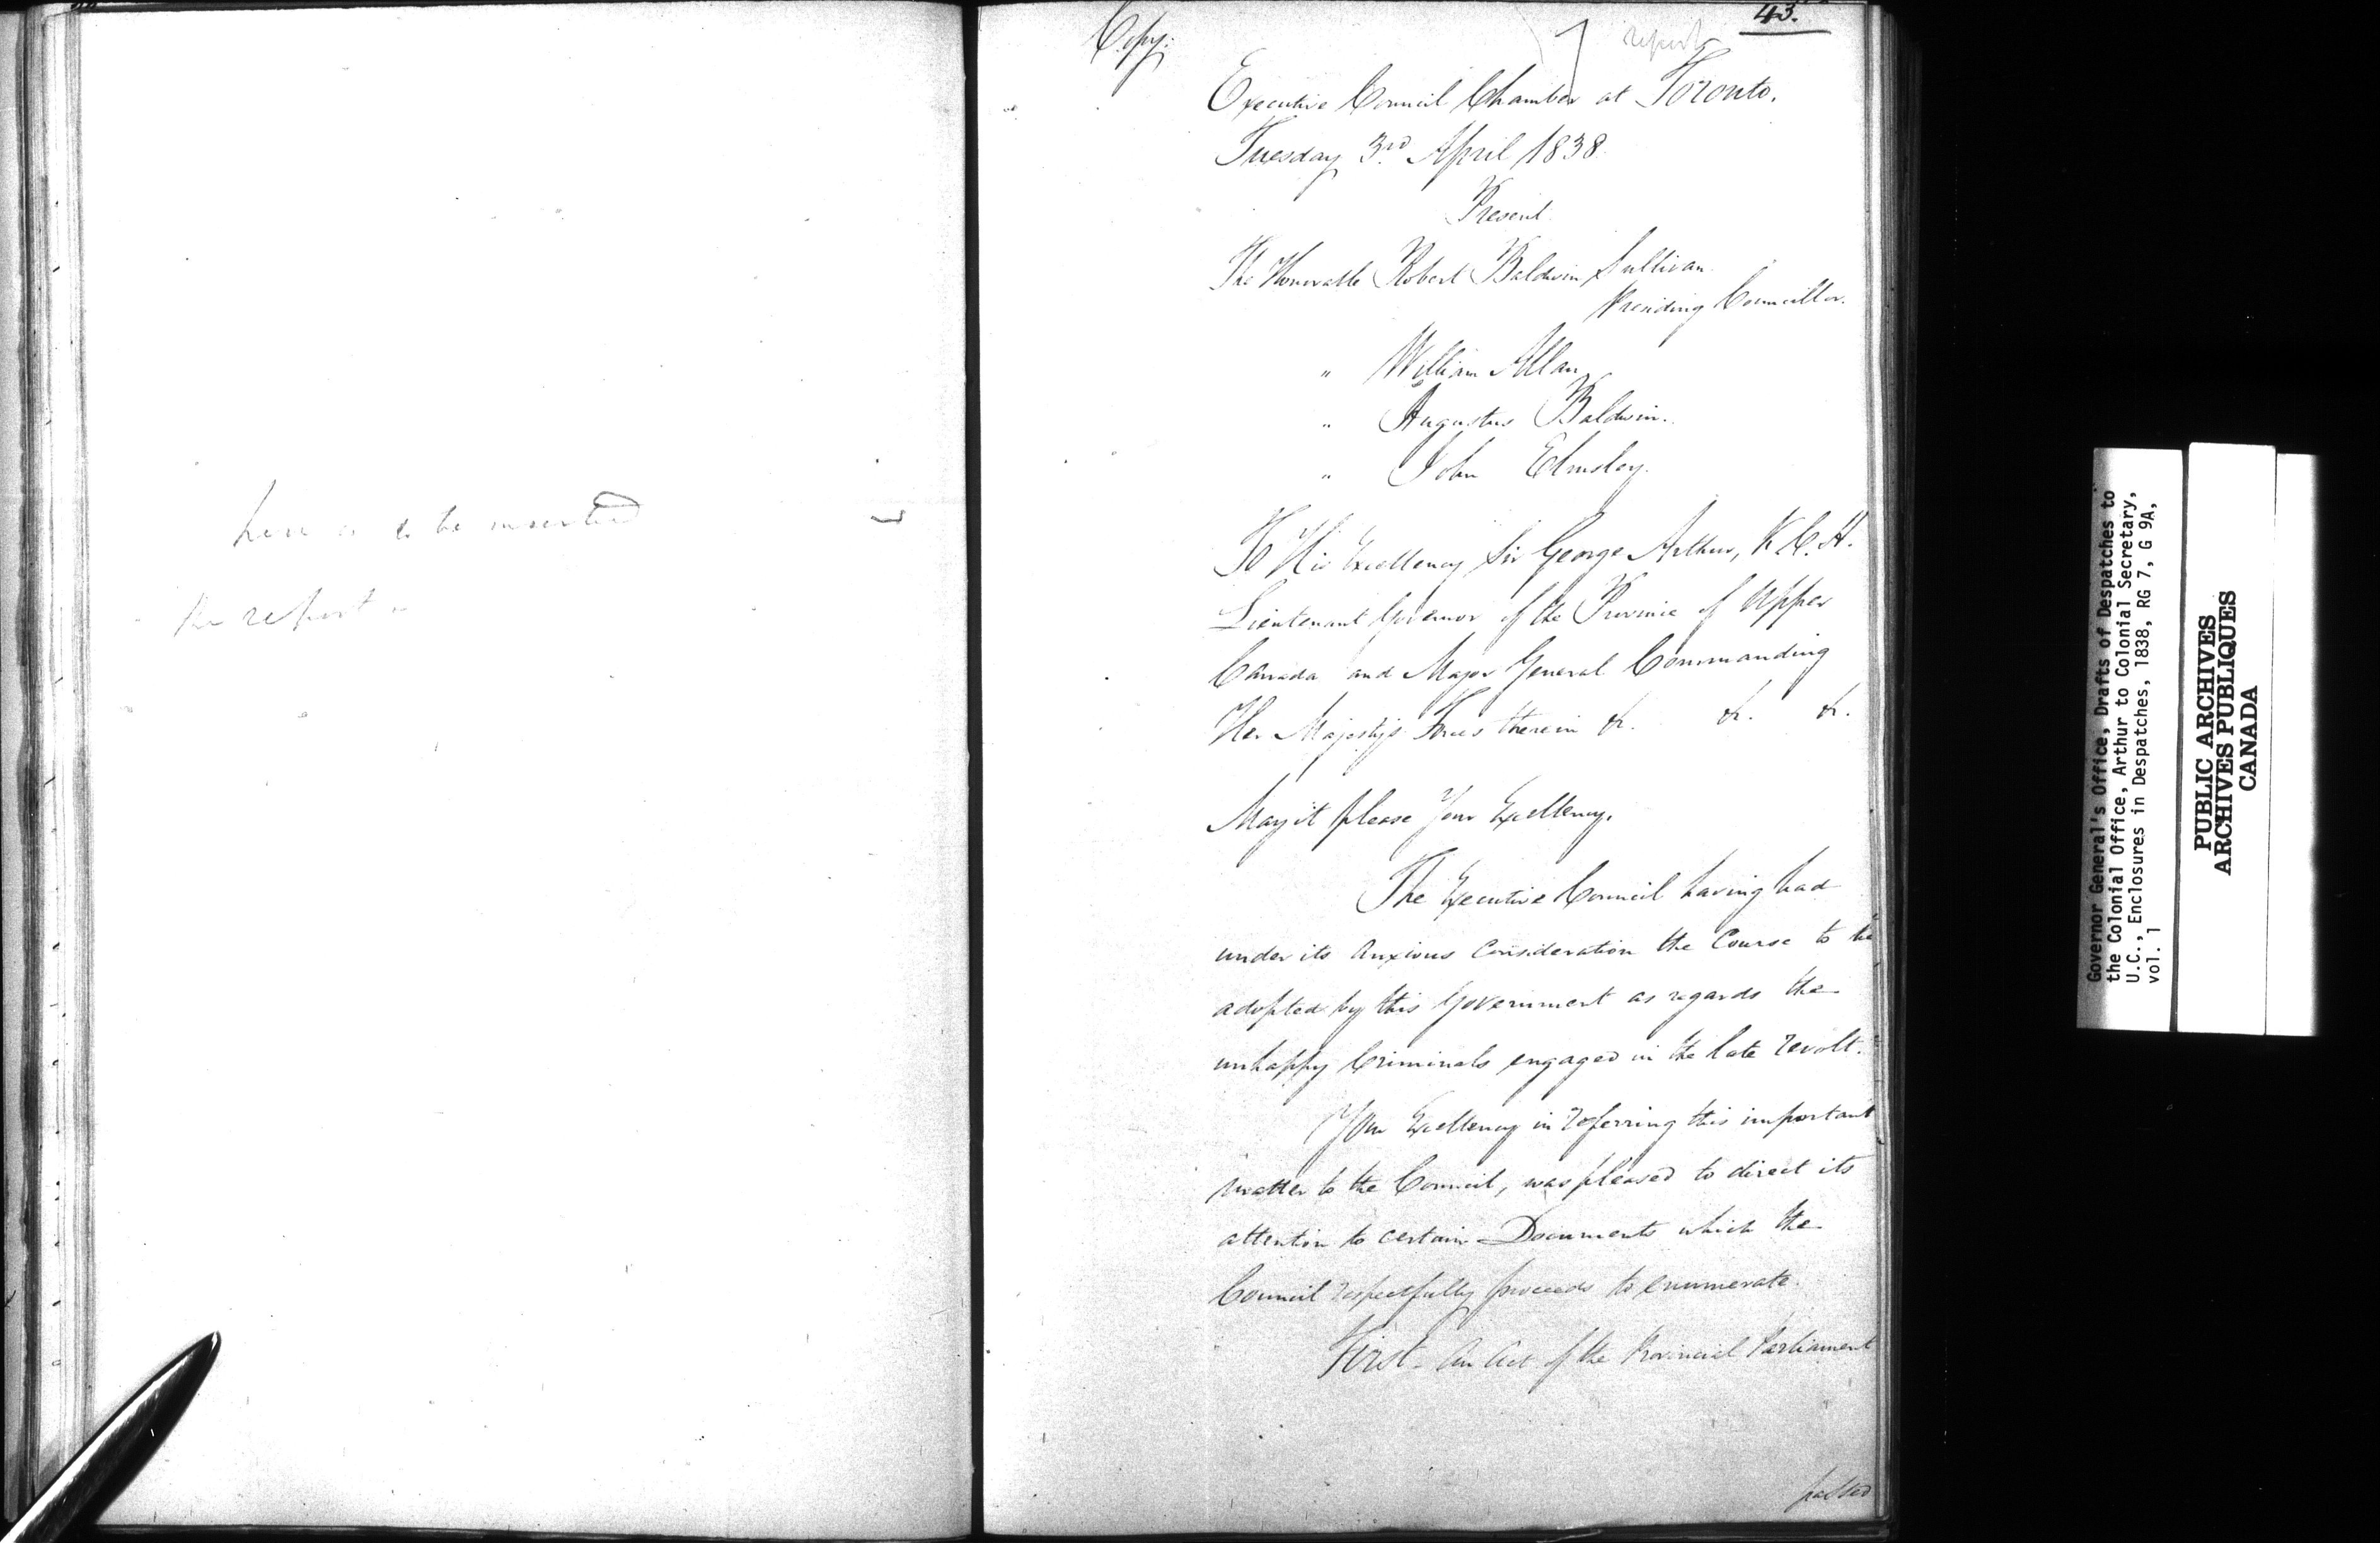 here is to be inserted
the report
Copy.
report
43.
Executive Council Chamber at Toronto.
Tuesday 3rd April 1838.
Present
The Honorable Robert Baldwin Sullivan
Presiding Councillor.
" William Allan
" Augustus Baldwin.
" John Elmsley.
To His Excellency Sir George Arthur, K.C.H.
Lieutenant Governor of the Province of Upper
Canada and Major General Commanding
Her Majesty's Forces therein &c. &c. &c.
May it please Your Excellency.
The Executive Council having had
under its anxious Consideration the Course to be
adopted by this Government as regards the
unhappy Criminals engaged in the late revolt.
Your Excellency in referring this important
matter to the Council, was pleased to direct its
attention to certain Documents which the
Council respectfully proceeds to enumerate.
First. An Act of the Provincial Parliament
passed
Governor General's Office, Drafts of Despatches to
the Colonial Office, Arthur to Colonial Secretary,
U.C., Enclosures in Despatches, 1838, RG 7, G 9A,
vol. 1
PUBLIC ARCHIVES
ARCHIVES PUBLIQUES
CANADA